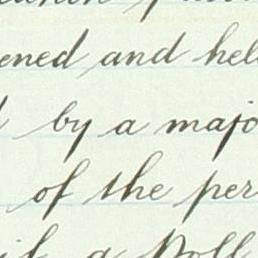 ened and hel
by a majo
of the per
a Poll